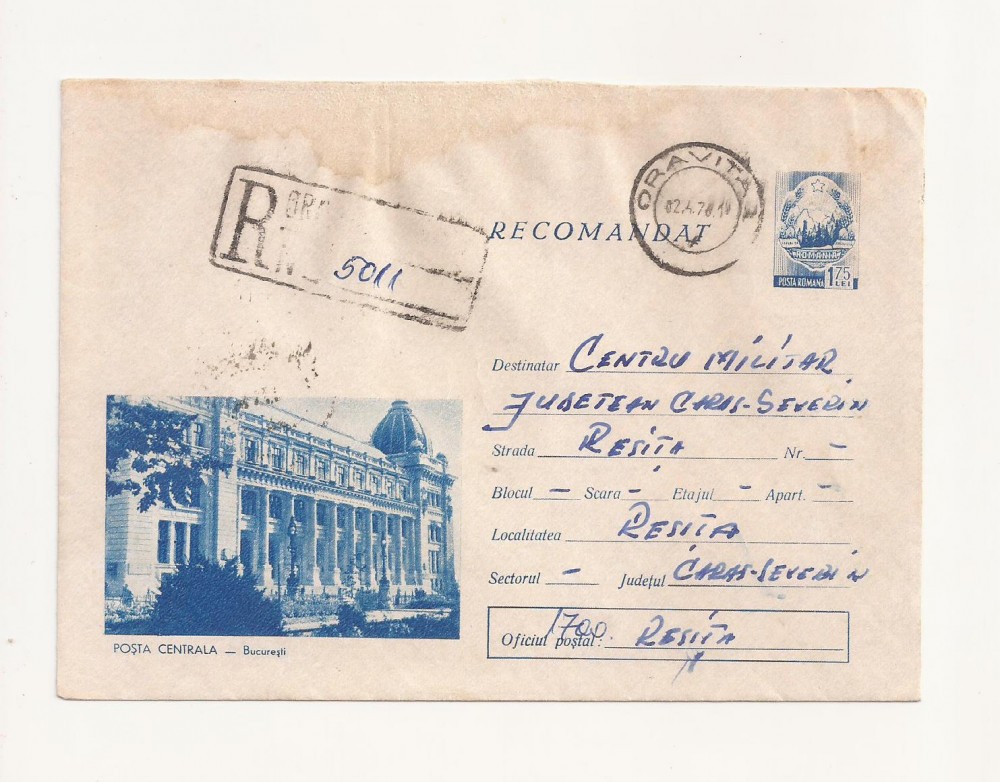 ORAVITA
02.4.76.10
R
N
5011
RECOMANDAT
ROMANIA
POSTA ROMANA 1,75 LEI
Destinatar CENTRU MILITAR
JUDETEAN CARAS-SEVERIN
Strada RESITA Nr. –
Blocul – Scara – Etajul – Apart. –
Localitatea RESITA
Sectorul – Județul CARAS-SEVERIN
1700.
Oficiul poștal: RESITA
POȘTA CENTRALA — București